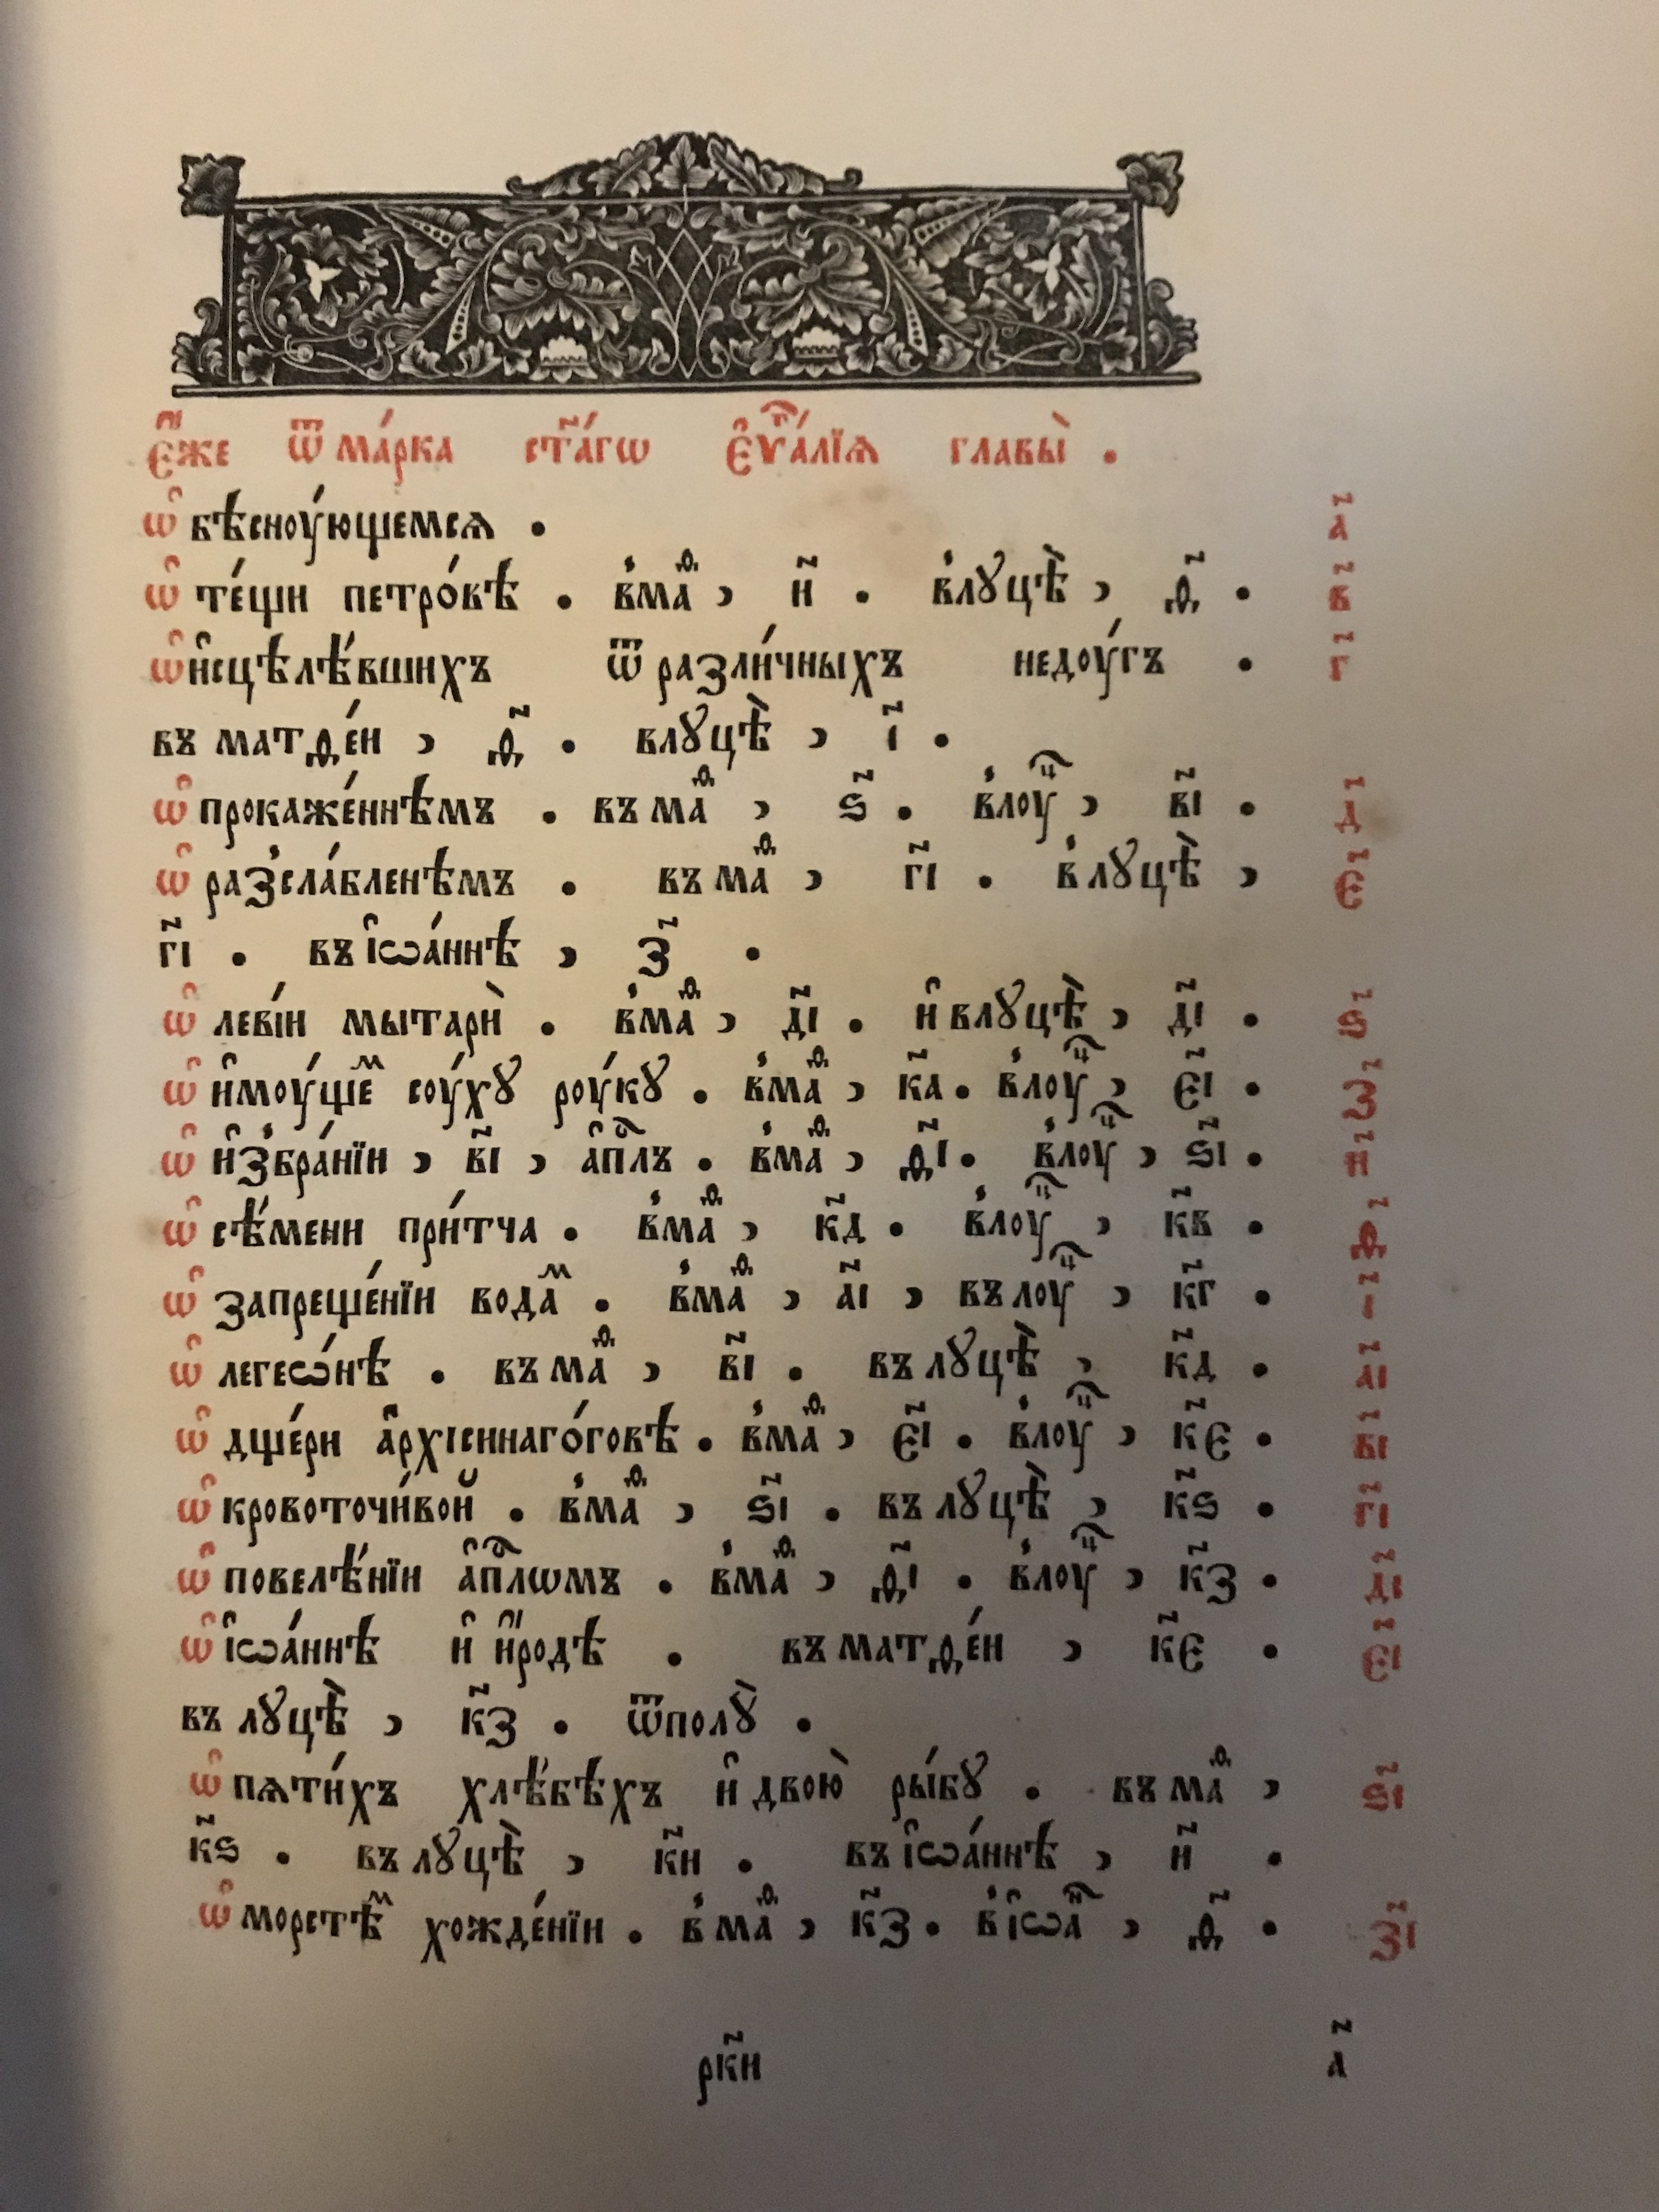 Е҆́же ѿ ма́рка ст҃а́гѡ є҆ѵⷢ҇а́лїѧ главы̀ .
ѡ҆ бѣсноу́ющемсѧ . а҃
ѡ҆ те́щи петро́вѣ . в̾маⷴ҇ , и҃ . в̾лꙋцѣ̀ , ѳ҃ . в҃
ѡ҆ и҆сцѣлѣ́вшихъ ѿ разли́чныхъ недоу́гъ . г҃
въ матѳе́и , ѳ҃ . влꙋцѣ̀ , і҃ .
ѡ҆ прокаже́ннѣмъ . въ маⷴ҇ , ѕ҃ . в̾лоуⷰ҇ , в҃і . д҃
ѡ҆ раз̾сла́бленѣмъ . въ маⷴ҇ , г҃і . в̾ лꙋцѣ̀ , є҃
г҃і . въ і҆ѡа́ннѣ , з҃ .
ѡ҆ леві́и мытарѝ . в̾маⷴ҇ , д҃і . и҆ влꙋцѣ̀ , д҃і . ѕ҃
ѡ҆ и҆моу́щеⷨ соу́хꙋ роу́кꙋ . в̾маⷴ҇ , к҃а . в̾лоуⷰ҇ , є҃і . з҃
ѡ҆ и҆з̾бра́нїи , в҃і , а҆пⷭ҇лъ . в̾маⷴ҇ , ѳ҃і . в̾лоуⷰ҇ , ѕ҃і . и҃
ѡ҆ сѣ́мени при́тча . в̾маⷴ҇ , к҃д . в̾лоуⷰ҇ , к҃в . ѳ҃
ѡ҆ запреще́нїи водаⷨ . в̾маⷴ҇ , а҃і , въ лоуⷰ҇ , к҃г . і҃
ѡ҆ легеѡ́нѣ . въ маⷴ҇ , в҃і . въ лꙋцѣ̀ , к҃д . а҃і
ѡ҆ дще́ри а҆рхісиннаго́говѣ . в̾маⷴ҇ , є҃і . в̾лоуⷰ҇ , к҃є . в҃і
ѡ҆ кровоточи́вой . в̾маⷴ҇ , ѕ҃і . въ лꙋцѣ̀ , к҃ѕ . г҃і
ѡ҆ повелѣ́нїи а҆пⷭ҇лѡмъ . в̾маⷴ҇ , ѳ҃і . в̾лоуⷰ҇ , к҃з . д҃і
ѡ҆ і҆ѡа́ннѣ и҆ и҆́родѣ . въ матѳе́и , к҃є . є҃і
въ лꙋцѣ̀ , к҃з . ѿполꙋ̀ .
ѡ҆ пѧти́хъ хлѣ́бѣхъ и҆ двою̀ ры́бꙋ . въ маⷴ҇ , ѕ҃і
к҃ѕ . въ лꙋцѣ̀ , к҃и . въ і҆ѡа́ннѣ , и҃ .
ѡ҆ морстѣⷨ хожде́нїи . в̾ маⷴ҇ , к҃з . в̾ і҆ѡаⷩ҇ , ѳ҃ . з҃і
рк҃и л҃